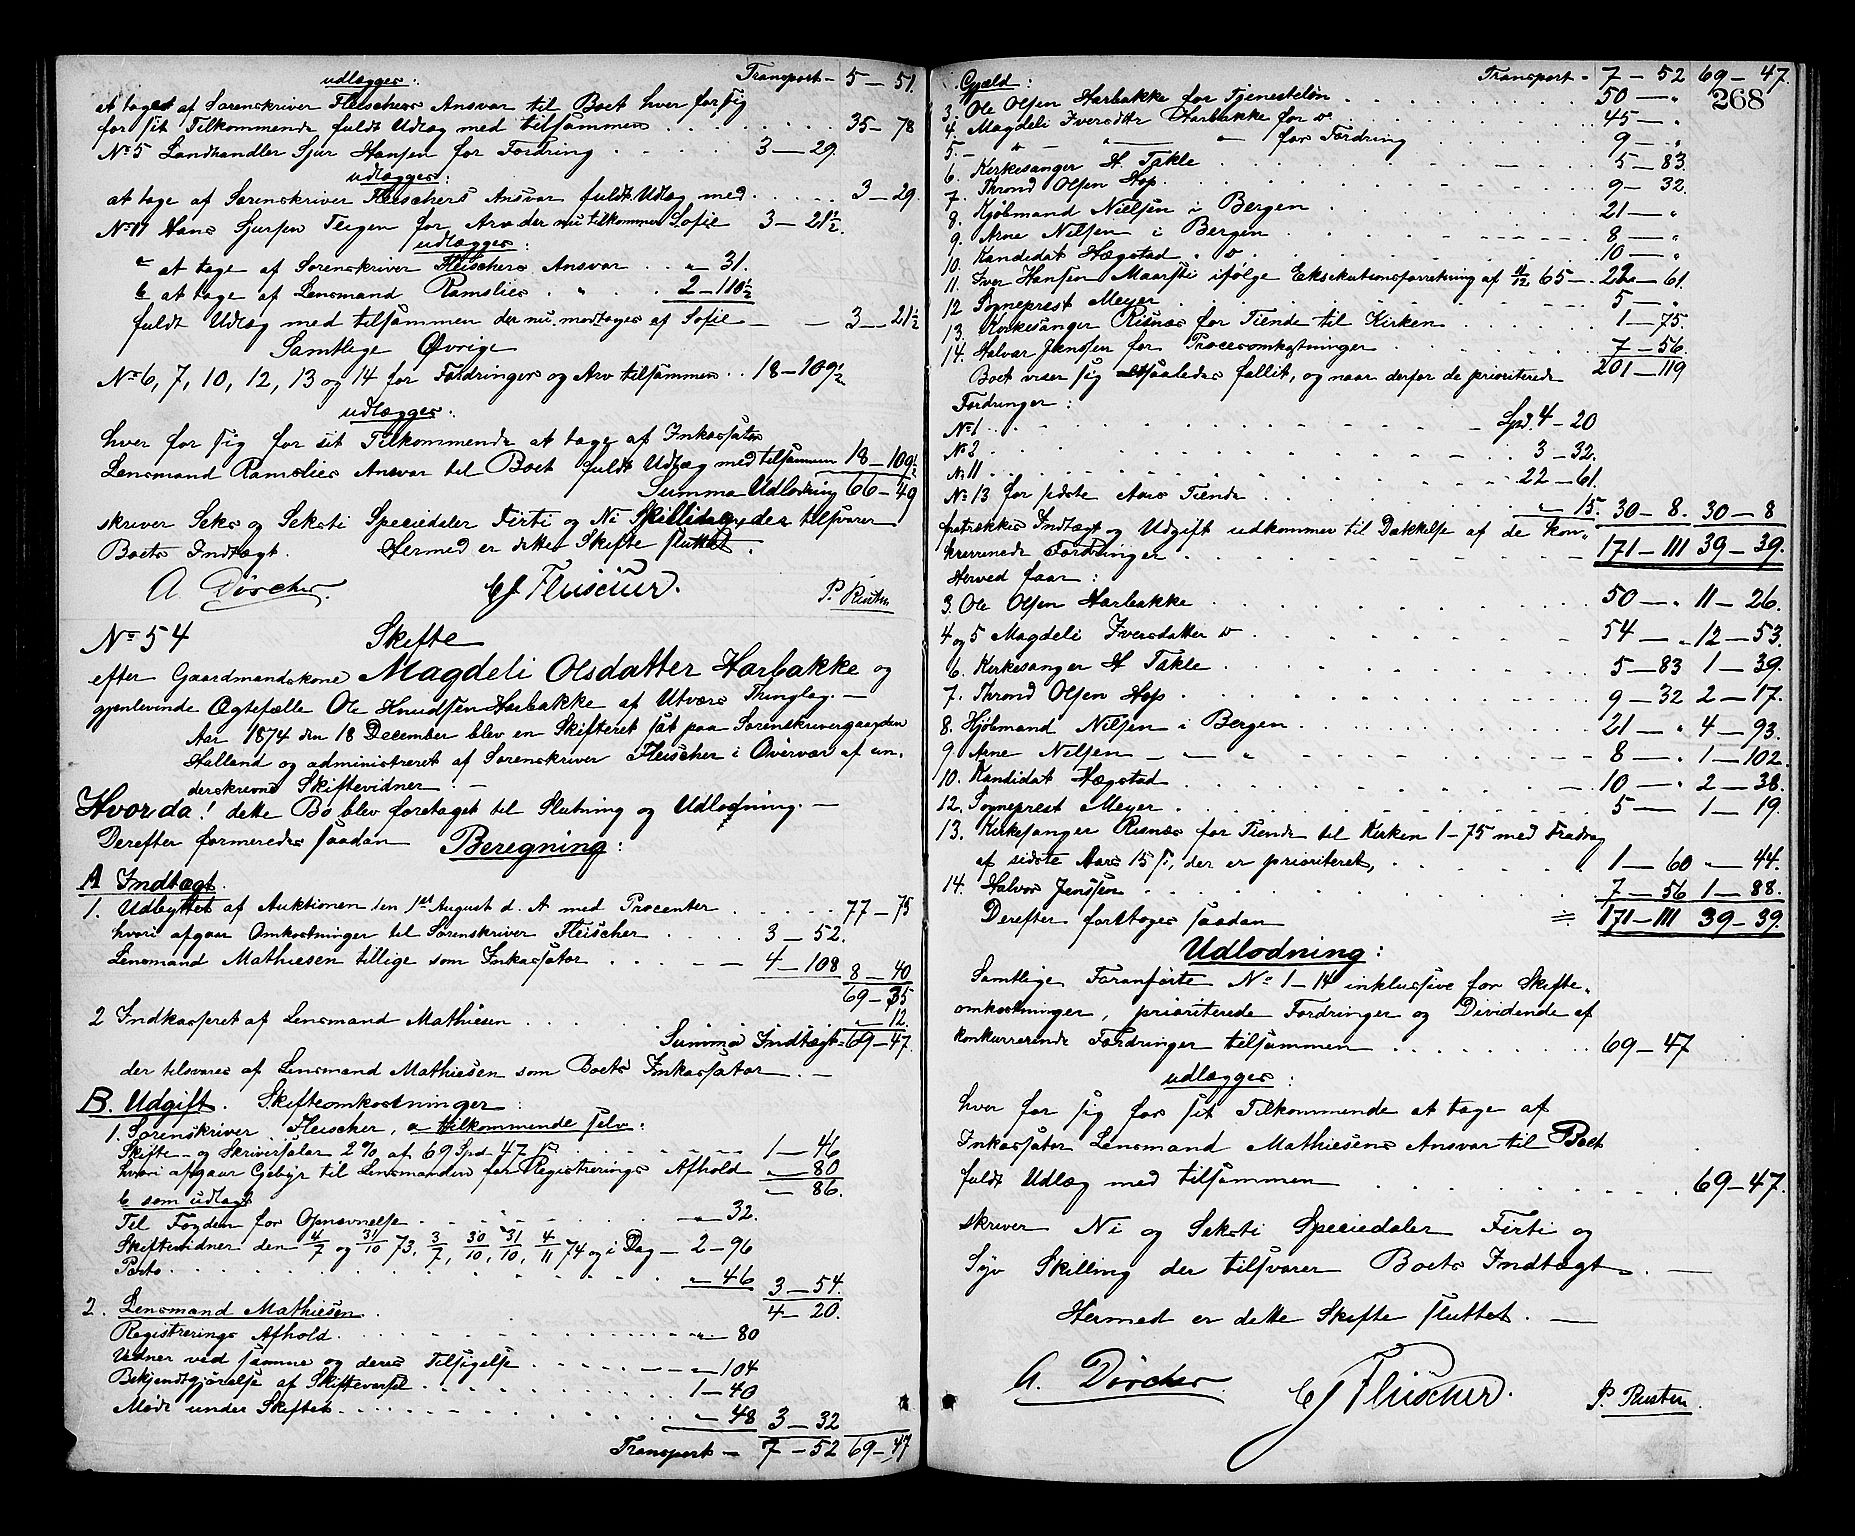 udlægges: Transport – 5 – 51.
at taget af Sorenskriver Fleischers Ansvar til Boet hver for sig
for sit Tilkommende fuldt Udlæg med tilsammen . . . 35 – 78
No 5 Landhandler Sjur Hansen for Fordring . . . 3 – 29.
udlægges:
at tage af Sorenskriver Fleischers Ansvar fuldt Udlæg med . . . 3 – 29.
No 11 Hans Sjursen Teigen for Arv der nu tilkommer Sofie 3 – 21½.
udlægges:
a at tage af Sorenskriver Fleischers Ansvar . . „ 31.
b at tage af Lensmand Ramslies „ 2 – 110½
fuldt Udlæg med tilsammen der nu modtages af Sofie – – 3 – 21½
Samtlige Øvrige
No 6, 7, 10, 12, 13 og 14 for Fordringer og Arv tilsammen . . 18 – 109½
udlægges:
hver for sig for sit Tilkommende at tage af Inkassator
Lensmand Ramslies Ansvar til Boet fuldt Udlæg med tilsammen 18 – 109½
Summa Udlodning 66 – 49
skriver Seks og Seksti Speciedaler Firti og Ni Skilling, der tilsvarer
Boets Indtægt. Hermed er dette Skifte sluttet.
A. Dörcher. CJ Fleischer. P. Risten
No 54 Skifte
efter Gaardmandskone Magdeli Olsdatter Harbakke og
gjenlevende Ægtefælle Ole Knudsen Harbakke af Utvær Thinglag. –
Aar 1874 den 18 December blev en Skifteret sat paa Sorenskrivergaarden
Halland og administreret af Sorenskriver Fleischer i Overvær af un-
derskrevne Skiftevidner. –
Hvorda! dette Bo blev foretaget til Slutning og Udlodning. –
Derefter formeredes saadan Beregning:
A Indtægt.
1. Udbyttet af Auktionen den 1st August d. A med Procenter . . . 77 – 75
hvori afgaar Omkostninger til Sorenskriver Fleischer . . . 3 – 52.
Lensmand Mathiesen tillige som Inkassator . . . – 4 – 108 8 – 40
69 – 35
2 Indkasseret af Lensmand Mathiesen . . . „ 12.
Summa Indtægt – 69 – 47.
der tilsvares af Lensmand Mathiesen som Boets Inkassator . –
B. Udgift. Skifteomkostninger:
1. Sorenskriver Fleischer, a tilkommende selv:
Skifte- og Skriversalær 2% af 69 Spd 47 ß . . . 1 – 46
hvori afgaar Gebyr til Lensmanden for Registrerings Afhold „ – 80
„ – 86.
b som udlagt
Til Fogden for Opnævnelse . . . „ – 32.
Skiftevidner den 4/7 og 31/10 73, 3/7, 30/10, 31/10, 4/11 74 og i Dag – 2 – 96
Porto . . . „ – 46 3 – 54.
4 – 20.
2. Lensmand Mathiesen.
Registrerings Afhold . . . „ – 80
Vidner ved samme og deres Tilsigelse . . . „ – 104
Bekjendtgjørelse af Skiftevarsel . . . 1 – 40
Møde under Skiftet . . . „ – 48 3 – 32
Transport – 7 – 52 69 – 47
Gjæld: Transport – 7 – 52 69 – 47.
268
3. Ole Olsen Harbakke for Tjenesteløn . . . 50 – „
4. Magdeli Iversdtr Harbakke for do . . . 45 – „
5. – „ – „ – „ for Fordring . . . 9 – „
6. Kirkesanger H. Takle . . . 5 – 83.
7. Thrond Olsen Hop . . . 9 – 32.
8. Kjöbmand Nielsen i Bergen . . . 21 – „
9. Arne Nilsen i Bergen . . . 8 – „
10. Kandidat Hægstad . do . . . 10 – „
11. Iver Hansen Maarsti ifølge Eksekutionsforretning af 4/12 65 – 22 – 61.
12 Sogneprest Meyer . . . 5 – „
13. Kirkesanger Risnæs for Tiende til Kirken . . . 1 – 75.
14. Halvor Jenssen for Procesomkostninger . . . 7 – 56.
Boet viser sig saaledes fallit, og naar derfor de prioriterede 201 – 119
Fordringer:
No 1 . . . Spd. 4 – 20
No 2 . . . 3 – 32.
No 11 . . . 22 – 61.
No 13 for sidste Aars Tiende . . . „ – 15. 30 – 8. 30 – 8
fratrækkes Indtægt og Udgift udkommer til Dækkelse af de kon-
kurrerende Fordringer . . . 171 – 111 39 – 39.
Herved faar:
3. Ole Olsen Harbakke . . . 50 – „ 11 – 26.
4 og 5 Magdeli Iversdatter do . . . 54 – „ 12 – 53.
6. Kirkesanger H Takle . . . 5 – 83 1 – 39.
7. Thrond Olsen Hop . . . 9 – 32 2 – 17.
8. Kjöbmand Nilsen i Bergen . . . 21 – „ 4 – 93.
9 Arne Nilsen – „ – „ . . . 8 – „ 1 – 102.
10. Kandidat Hægstad . . . 10 – „ 2 – 38.
12. Sogneprest Meyer . . . 5 – 1 – 19.
13. Kirkesanger Risnæs for Tiende til Kirken 1 – 75 med Fradrag
af sidste Aars 15 ß, der er prioriteret, . . . 1 – 60 „ – 44.
14. Halvor Jenssen . . . 7 – 56 1 – 88.
Derefter foretages saadan = 171 – 111 39 – 39.
Udlodning:
Samtlige Foranførte No 1 – 14 inklusive for Skifte-
omkostninger, prioriterede Fordringer og Dividende af
konkurrerende Fordringer tilsammen . . . 69 – 47
udlægges:
hver for sig for sit Tilkommende at tage af
Inkassator Lensmand Mathiesens Ansvar til Boet
fuldt Udlæg med tilsammen . . . 69 – 47.
skriver Ni og Seksti Speciedaler Firti og
Syv Skilling der tilsvarer Boets Indtægt. –
Hermed er dette Skifte sluttet. –
A. Dörcher. CJ Fleischer. P. Risten